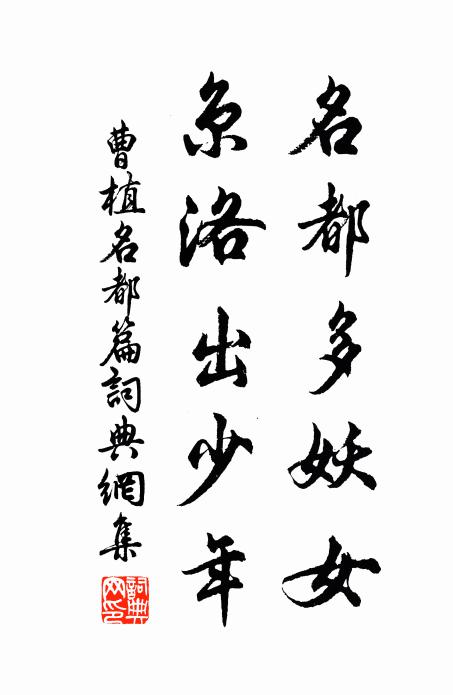 名都多妖女
京洛出少年
曹植名都篇詞典網集
詞典網印